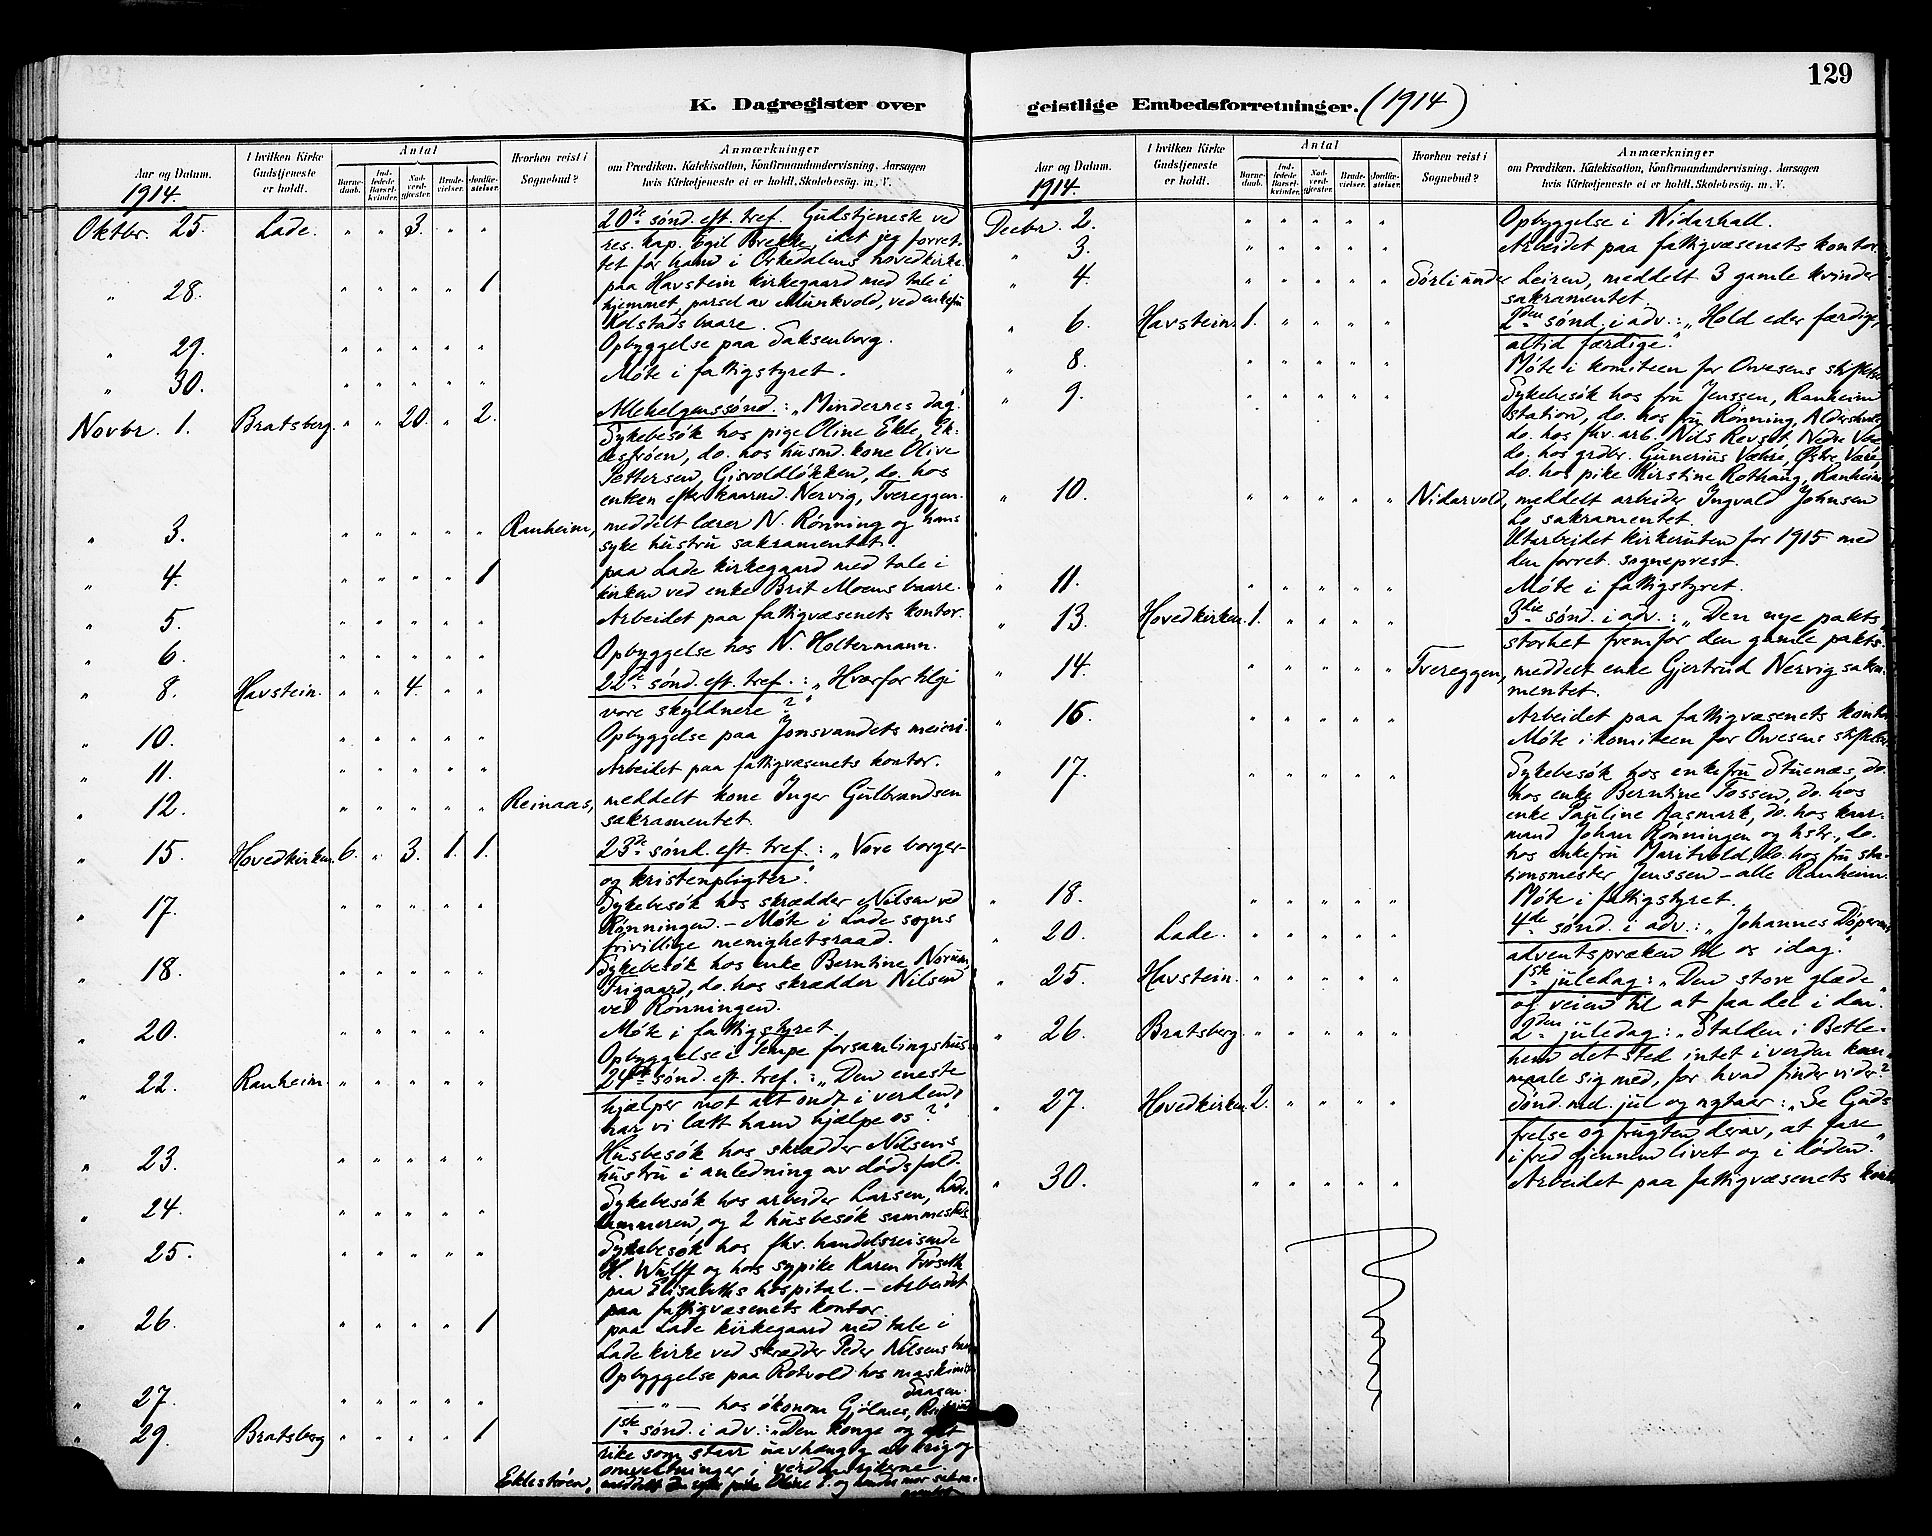 129
K. Dagregister over geistlige Embedsforretninger. (1914)
Aar og Datum.
1914.
I hvilken Kirke Gudstjeneste er holdt.
Antal
Barne-daab.
Ind-ledede Barsel-kvinder.
Nad-verd-gjester.
Brude-vielser.
Jordfæ-stelser.
Hvorhen reist i Sognebud?
Anmærkninger
om Prædiken. Katekisation, Konfirmandundervisning. Aarsagen
hvis Kirketjeneste ei er holdt. Skolebesøg. m. V.
Oktbr. 25. Lade. " " 3. " " 20de sønd. eft. tref. Gudstjeneste ved
res. kap. Egil Brekke, idet jeg forret-
tet for ham i Orkedalens hovedkirke.
" 28. " " " " 1 paa Havstein kirkegaard med tale i
hjemmet, parsel av Munkvold, ved enkefru
Kolstads baare.
" 29. " " " " " Opbyggelse paa Saksenborg.
" 30. " " " " " Møte i fattigstyret.
Novbr. 1. Bratsberg. " " 20. " 2. Allehelgenssønd.: „Mindernes dag."
Sykebesøk hos pige Oline Ekle, Ek-
lestrøen, do. hos husmd. kone Olive
Pettersen, Gisvoldløkken, do. hos
enken efter kaarmd. Nervig, Tvereggen.
" 3. " " " " " Ranheim, meddelt lærer N. Rønning og hans
syke hustru sakramentet.
" 4. " " " " 1 paa Lade kirkegaard med tale i
kirken ved enke Brit Moens baare.
" 5. " " " " " Arbeidet paa fattigvæsenets kontor.
" 6. " " " " " Opbyggelse hos N. Holtermann.
" 8. Havstein. " " 4. " " 22de sønd. eft. tref.: „Hvorfor tilgi
vore skyldnere?"
" 10. " " " " " Opbyggelse paa Jonsvandets meieri.
" 11. " " " " " Arbeidet paa fattigvæsenets kontor.
" 12. " " " " " Reinaas, meddelt kone Inger Gulbrandsen
sakramentet.
" 15. Hovedkirken. 6. " 3. 1. 1. 23de sønd. eft. tref.: „Vore borger-
og kristenpligter."
" 17. " " " " " Sykebesøk hos skrædder Nilsen ved
Rønningen. – Møte i Lade sogns
frivillige menighetsraad.
" 18. " " " " " Sykebesøk hos enke Berntine Norum,
Frigaard, do. hos skrædder Nilsen
ved Rønningen.
" 20. " " " " " Møte i fattigstyret.
Opbyggelse i Tempe forsamlingshus.
" 22. Ranheim. " " " " " 24de sønd. eft. tref.: „Den eneste
hjælper mot alt ondt i verden,
har vi latt ham hjælpe os?"
" 23. " " " " " Husbesøk hos skrædder Nilsens
hustru i anledning av dødsfald.
" 24. " " " " " Sykebesøk hos arbeider Larsen, Lade-
hammeren, og 2 husbesøk sammesteds.
" 25. " " " " " Sykebesøk hos fhv. handelsreisende
H. Wulff og hos sypike Karen Frøseth
paa Elisabeths hospital. – Arbeidet
paa fattigvæsenets kontor.
" 26. " " " " 1 paa Lade kirkegaard med tale i
Lade kirke ved skrædder Peder Nilsens baare.
Opbyggelse paa Rotvold hos maskinist
" 27. " " " " " – " – hos økonom Gjølmes,
" 29. Bratsberg " " " " 1 1ste sønd. i adv.: „Den konge og det
rike som staar uavhængig av krig og
omveltninger i verdensrikerne.
Eklestrøen, meddelt den syke pike Oline E. og hendes mor sakra-
mentet.
Aar og Datum.
1914.
I hvilken Kirke Gudstjeneste er holdt.
Antal
Barne-daab.
Ind-ledede Barsel-kvinder.
Nad-verd-gjester.
Brude-vielser.
Jordfæ-stelser.
Hvorhen reist i Sognebud?
Anmærkninger
om Prædiken. Katekisation, Konfirmandundervisning. Aarsagen
hvis Kirketjeneste ei er holdt. Skolebesøg. m. V.
Decbr. 2. " " " " " Opbyggelse i Nidarhall.
" 3. " " " " " Arbeidet paa fattigvæsenets kontor.
" 4. " " " " " Sørli under Leiren, meddelt 3 gamle kvinder
sakramentet.
" 6. Havstein. 1. " " " " 2den sønd. i adv.: „Hold eder færdige,
altid færdige."
" 8. " " " " " Møte i komiteen for Owesens stiftelse
" 9. " " " " " Sykebesøk hos fru Jenssen, Ranheim
station, do. hos fru Rønning,
do. hos fhv. arb. Nils Revset, Nedre Være
do. hos grdbr. Gunerius Væhre, Østre Være,
do. hos pike Kirstine Rothaug, Ranheim
" 10. " " " " " Nidarvold, meddelt arbeider Ingvald Johnsen
do sakramentet.
Utarbeidet kirkeruten for 1915 med
den forret. sogneprest.
" 11. " " " " " Møte i fattigstyret.
" 13. Hovedkirken. 1. " " " " 3die sønd. i adv.: „Den nye pakts
storhet fremfor den gamle pakts."
" 14. " " " " " Tvereggen, meddelt enke Gjertrud Nervig sakra-
mentet.
" 16. " " " " " Arbeidet paa fattigvæsenets kontor
Møte i komiteen for Owesens stiftelse.
" 17. " " " " " Sykebesøk hos enkefru Stuenæs, do.
hos enke Berntine Fossen, do. hos
enke Pauline Aasmark, do. hos kaar-
mand Johan Rønningen og hstr., do.
hos enkefru Maritvold, do. hos fru sta-
tionsmester Jenssen – alle Ranheim.
" 18. " " " " " Møte i fattigstyret.
" 20. Lade. " " " " " 4de sønd. i adv.: „Johannes Døperens
adventspræken til os idag."
" 25. Havstein. " " " " " 1ste juledag: „Den store glæde
og veien til at faa del i den."
" 26. Bratsberg. " " " " " 2den juledag: „Stalden i Betle-
hem det sted intet i verden kan
maale sig med, for hvad finder vi der?"
" 27. Hovedkirken. 2. " " " " Sønd. ml. jul og nytaar: „Se Guds
frelse og frugten derav, at fare
i fred gjennem livet og i døden."
" 30. " " " " " Arbeidet paa fattigvæsenets kontor